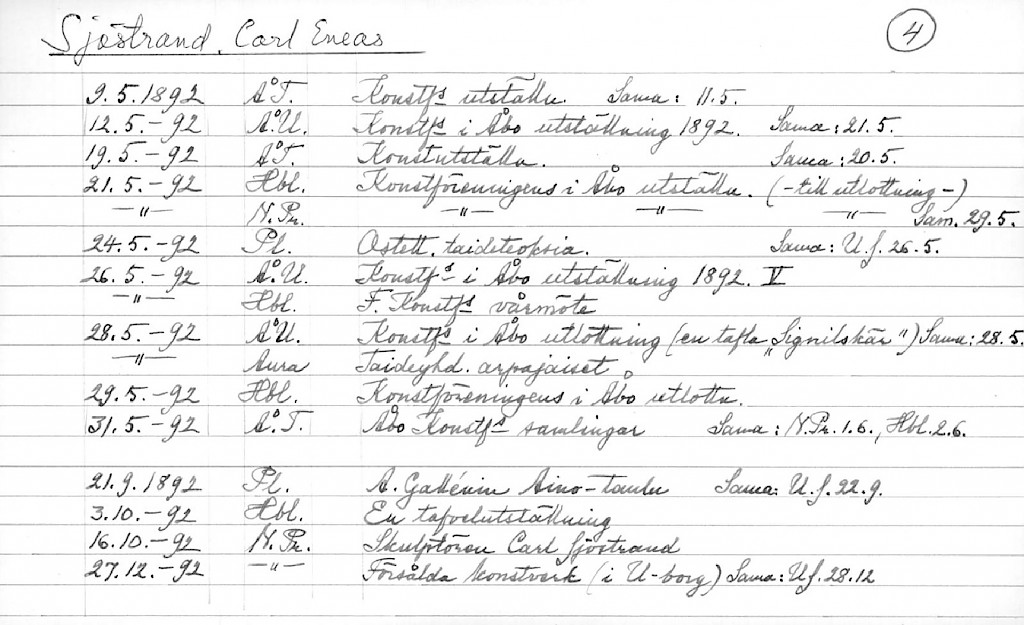 Sjöstrand, Carl Eneas 4
9.5.1892 Å.T. Konstfs utställn. Sama: 11.5.
12.5.-92 Å.U. Konstfs i Åbo utställning 1892. Sama: 21.5.
19.5.-92 Å.T. Konstutställn. Sama: 20.5.
21.5.-92 Hbl. Konstföreningens i Åbo utställn. (-till utlottning-)
-"- N.Pr. -"- -"- -"- Sam. 29.5.
24.5.-92 Pl. Ostett. taideteoksia. Sama: U.S. 26.5.
26.5.-92 Å.U. Konstfs i Åbo utställning 1892. V
-"- Hbl. F. Konstfs vårmöte
28.5.-92 Å.U. Konstfs i Åbo utlottning (en tafla „Signilskär") Sama: 28.5.
-"- Aura Taideyhd. arpajaiset
29.5.-92 Hbl. Konstföreningens i Åbo utlottn.
31.5.-92 Å.T. Åbo Konstfs samlingar Sama: N.Pr. 1.6., Hbl. 2.6.
21.9.1892 Pl. A. Gallénin Aino-taulu Sama: U.S. 22.9.
3.10.-92 Hbl. En tafvelutställning
16.10.-92 N.Pr. Skulptören Carl Sjöstrand
27.12.-92 -"- Försålda konstverk (i U-borg) Sama: U.S. 28.12